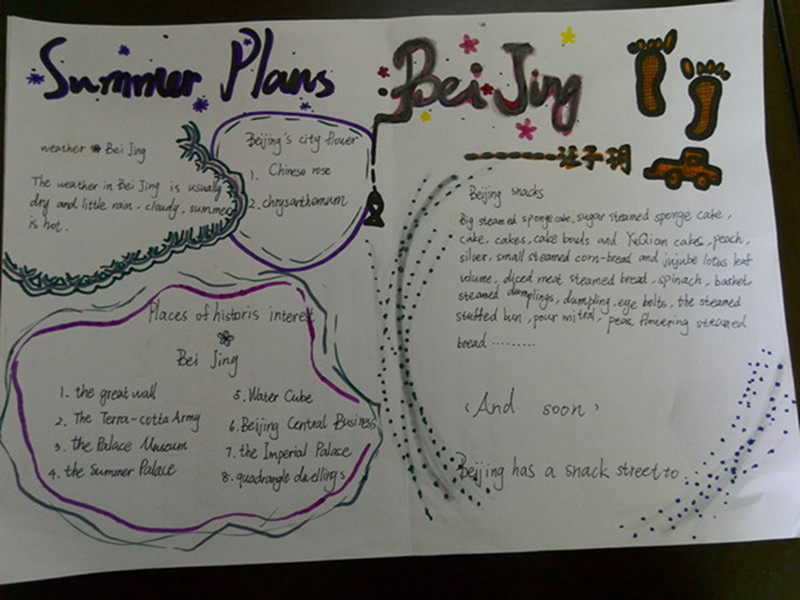 Summer Plans
Bei Jing
weather Bei Jing
The weather in Bei Jing is usually
dry and little rain - cloudy, summer
is hot.
Beijing's city flower
1. Chinese rose
2. chrysanthemum
Places of historis interest
Bei Jing
1. the great wall
2. The Terra-cotta Army
3. the Palace Museum
4. the Summer Palace
5. Water Cube
6. Beijing Central Business
7. the Imperial Palace
8. quadrangle dwellings
Beijing snacks
Big steamed sponge cake, sugar steamed sponge cake,
cake, cakes, cake bowls and YeQian cakes, peach,
silver, small steamed corn-bread and jujube lotus leaf
volume, diced meat steamed bread, spinach, basket
steamed dumplings, dumpling, eye bolts, the steamed
stuffed bun, pour, peas flowering steamed
bread .........
And soon
Beijing has a snack street to